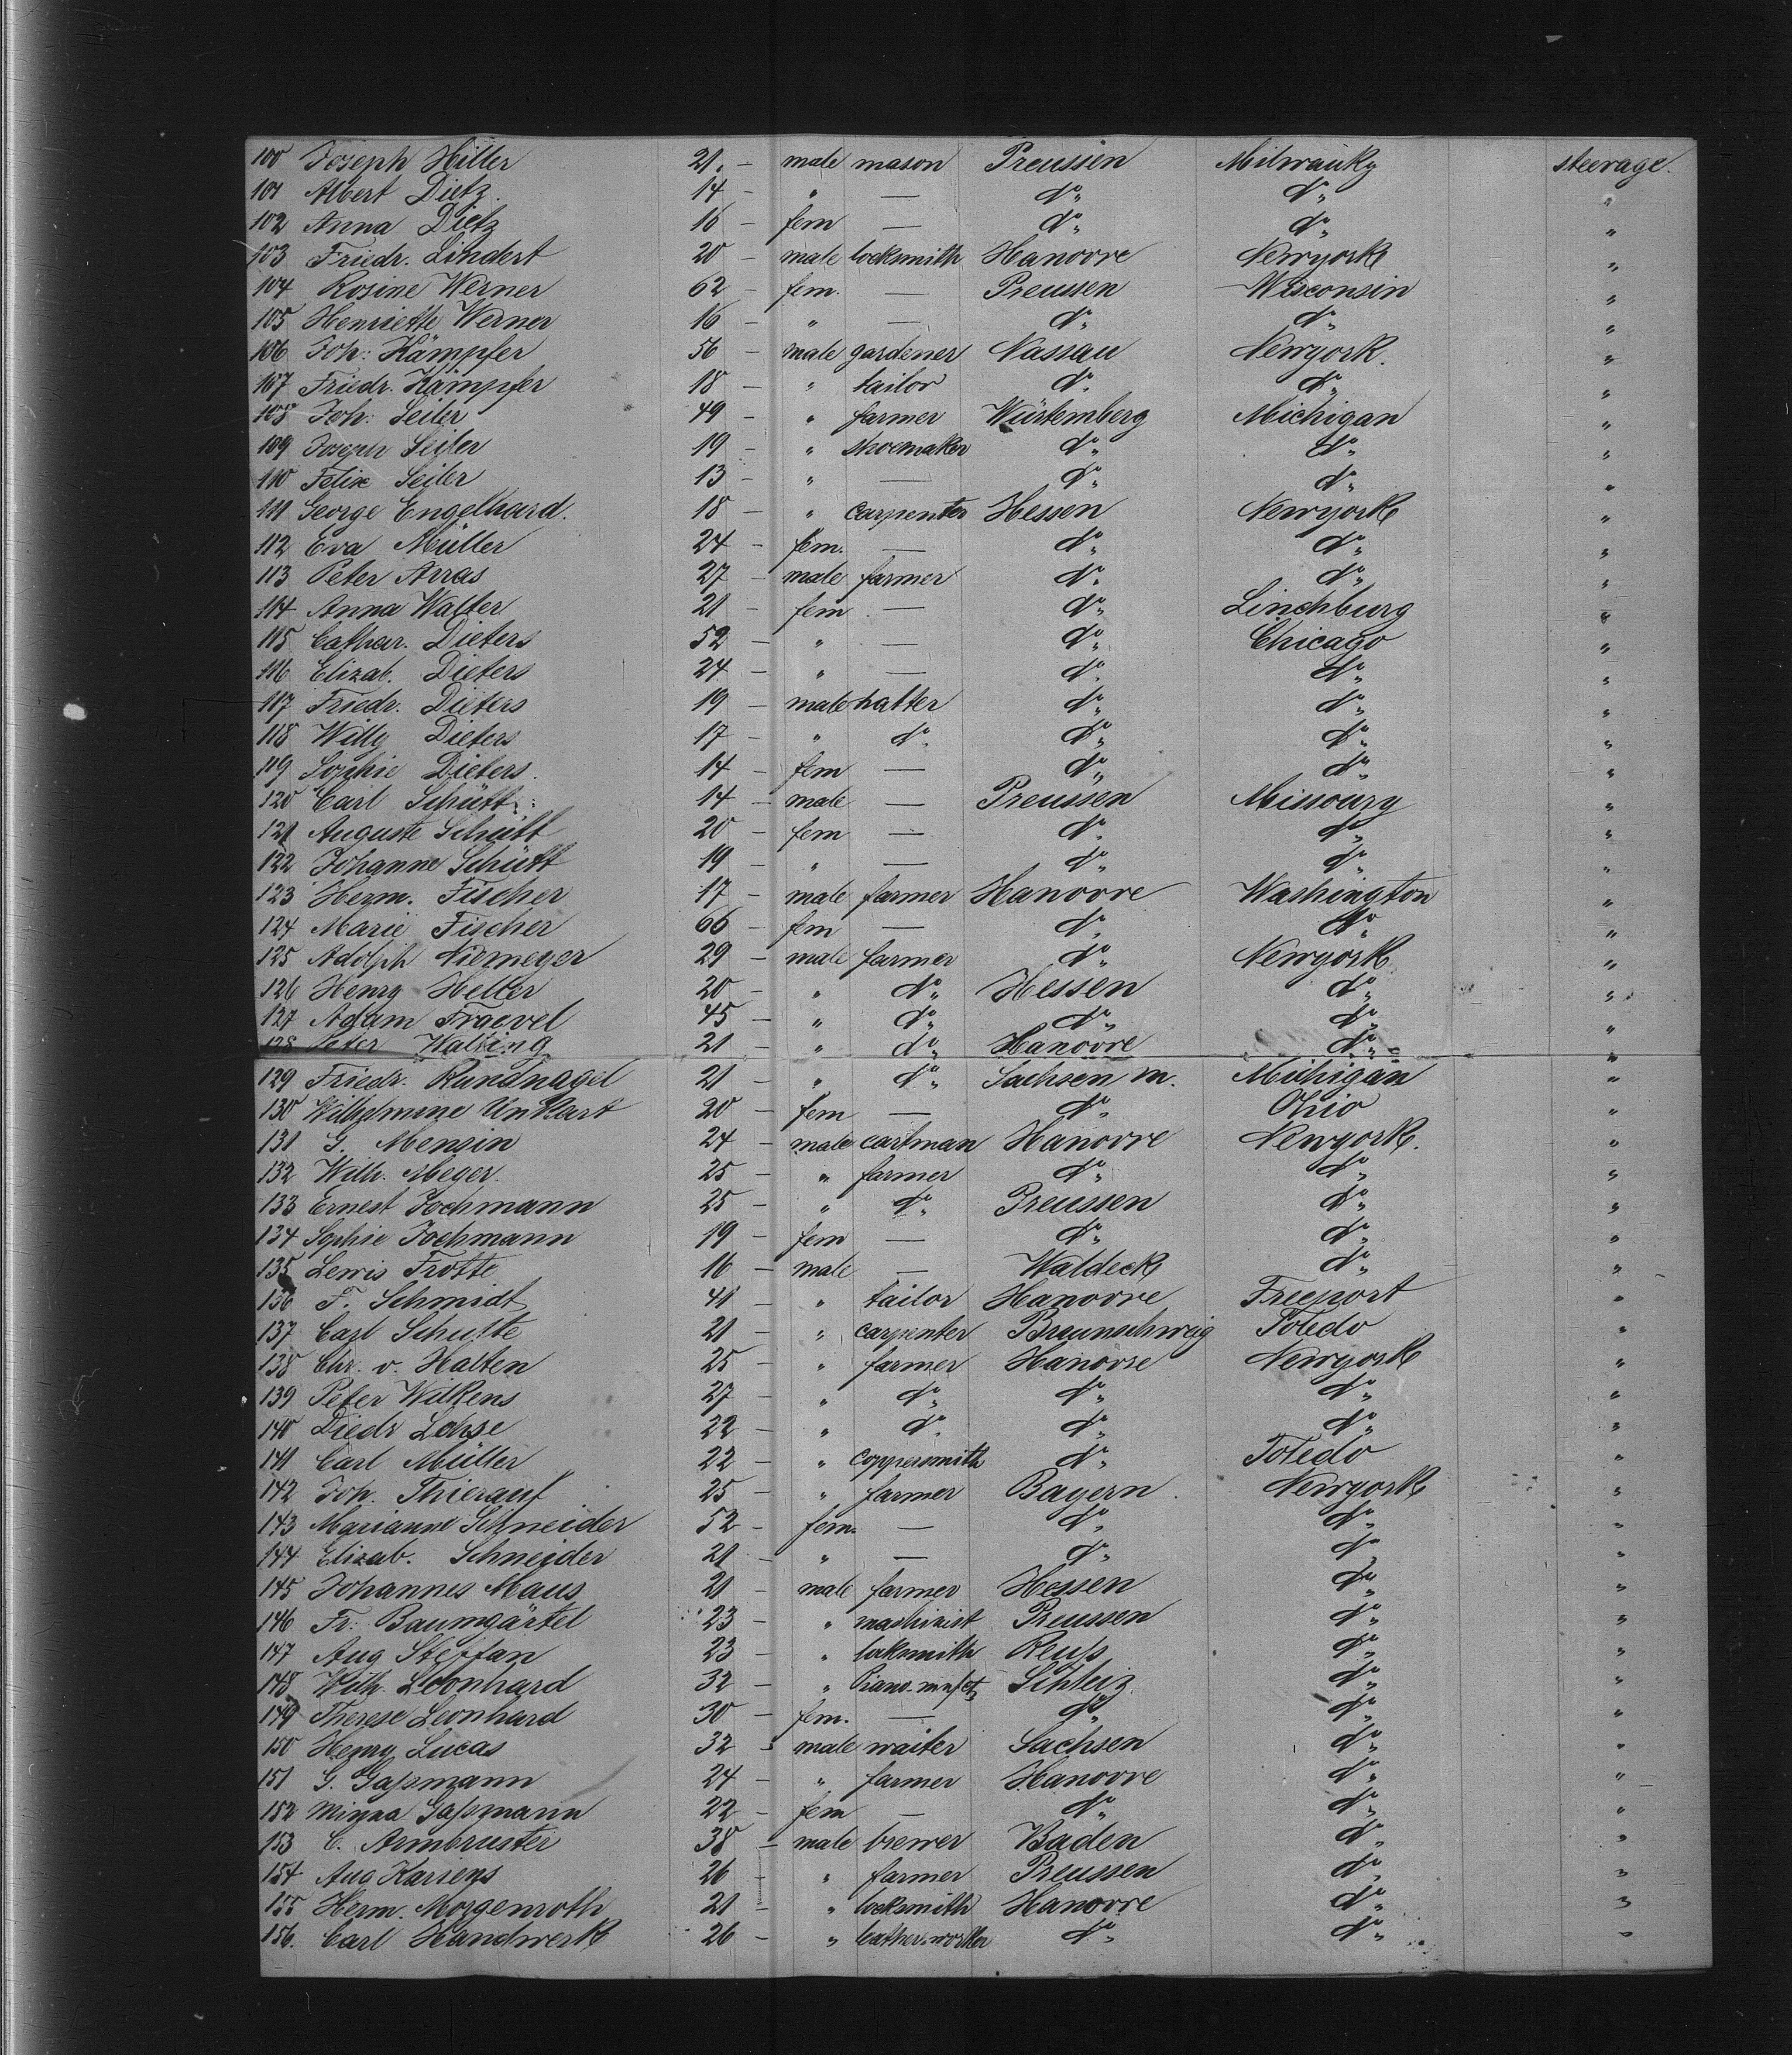 100 Joseph Hiller 21. – male mason Preussen Milwauky steerage.
101 Albert Dietz. 14 – " — do " do " "
102 Anna Dietz 16 – fem — do " do " "
103 Friedr. Lindert 20 – male locksmith Hanovre Newyork "
104 Rosine Werner 62 – fem. — Preussen Wisconsin "
105 Henriette Werner 16 – " — do " do " "
106 Joh: Kämpfer 56 – male gardener Nassau Newyork. "
107 Friedr. Kämpfer 18 – " tailor do " do " "
108 Joh: Seiler 49 – " farmer Würtemberg Michigan "
109 Joseph Seiler 19 – " shoemaker do " do " "
110 Felix Seiler 13 – " — do " do " "
111 George Engelhard. 18 – " carpenter Hessen Newyork "
112 Eva Müller 24 – fem. — do " do " "
113 Peter Arras 27 – male farmer do " do " "
114 Anna Walter 21 – fem. — do " Linchburg "
115 Cathar. Dieters 52 – " — do " Chicago "
116 Elizab. Dieters 24 – " — do " do " "
117 Friedr. Dieters 19 – male hatter do " do " "
118 Willy Dieters 17 – " do " do " do " "
119 Sophie Dieters. 14 – fem — do " do " "
120 Carl Schütt 14 – male — Preussen Missoury "
121 Auguste Schütt 20 – fem — do " do " "
122 Johanne Schütt 19 – " — do " do " "
123 Herm. Fischer 17 – male farmer Hanovre Washington "
124 Marie Fischer 66 – fem — do " do " "
125 Adolph Niemeyer 29 – male farmer do " Newyork "
126 Henry Heller 20 – " do " Hessen do " "
127 Adam Fraevel 45 – " do " do " do " "
128 Peter Walting 21 – " do " Hanovre do " "
129 Friedr. Rundnagel 21 – " do " Sachsen m. Michigan "
130 Wilhelmine Unkart 20 – fem — do " Ohio "
131 G. Mensin 24 – male cartman Hanovre Newyork. "
132 Wilh. Meyer. 25 – " farmer do " do " "
133 Ernest Jochmann 25 – " do " Preussen do " "
134 Sophie Jochmann 19 – fem — do " do " "
135 Lewis Trotte 16 – male — Waldeck do " "
136 F. Schmidt 41 – " tailor Hanovre Freeport "
137 Carl Schutte 21 – " carpenter Braunschweig Toledo "
138 Chr. v. Halten 25 – " farmer Hanovre Newyork "
139 Peter Wilkens 27 – " do " do " do " "
140 Diedr Lohse 22 – " do " do " do " "
141 Carl Müller 22 – " coppersmith do " Toledo "
142 Joh. Thierauf 25 – " farmer Bayern. Newyork "
143 Marianne Schneider 52 – fem. — do " do " "
144 Elizab. Schneider 21 – " — do " do " "
145 Johannes Maus 21 – male farmer Hessen do " "
146 Fr: Baumgärtel 23 – " machinist Preussen do " "
147 Aug Steffan 23 – " locksmith Reuß do " "
148 Wilh. Leonhard 32 – " Piano-mnfct. Schleiz do " "
149 Therese Leonhard 30 – fem. — do " do " "
150 Henry Lucas 32 – male waiter Sachsen do " "
151 G. Gaßmann 24 – " farmer Hanovre do " "
152 Minna Gaßmann 22 – fem — do " do " "
153 C. Armbruster 38 – male brewer Baden do " "
154 Aug Karsens 26 – " farmer Preussen do " "
155 Herm. Morgenroth 21 – " locksmith Hanovre do " "
156. Carl Handwerk 26 – " leather-worker do " do " "